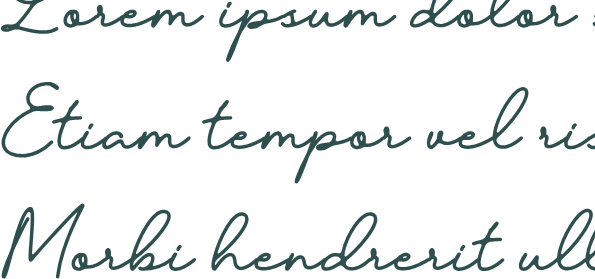 Lorem ipsum dolor
Etiam tempor vel
Morbi hendrerit